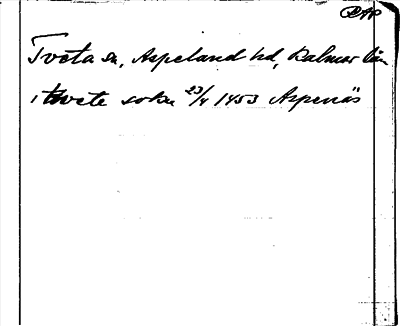 RAP
Tveta sn, Aspeland hd, Kalmar län
i twete sokn 23/4 1453 Aspenäs